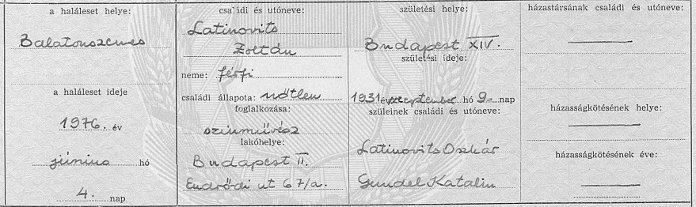 a haláleset helye:
Balatonszemes
a haláleset ideje
1976. év
június hó
4. nap
családi és utóneve:
Latinovits
Zoltán
neme: férfi
családi állapota: nőtlen
foglalkozása:
színművész
lakóhelye:
Budapest II.
Endrődi ut 67/a.
születési helye:
Budapest XIV.
születési ideje:
1931 év szeptember hó 9 nap
szüleinek családi és utóneve:
Latinovits Oszkár
Gundel Katalin
házastársának családi és utóneve:
házasságkötésének helye:
házasságkötésének éve: